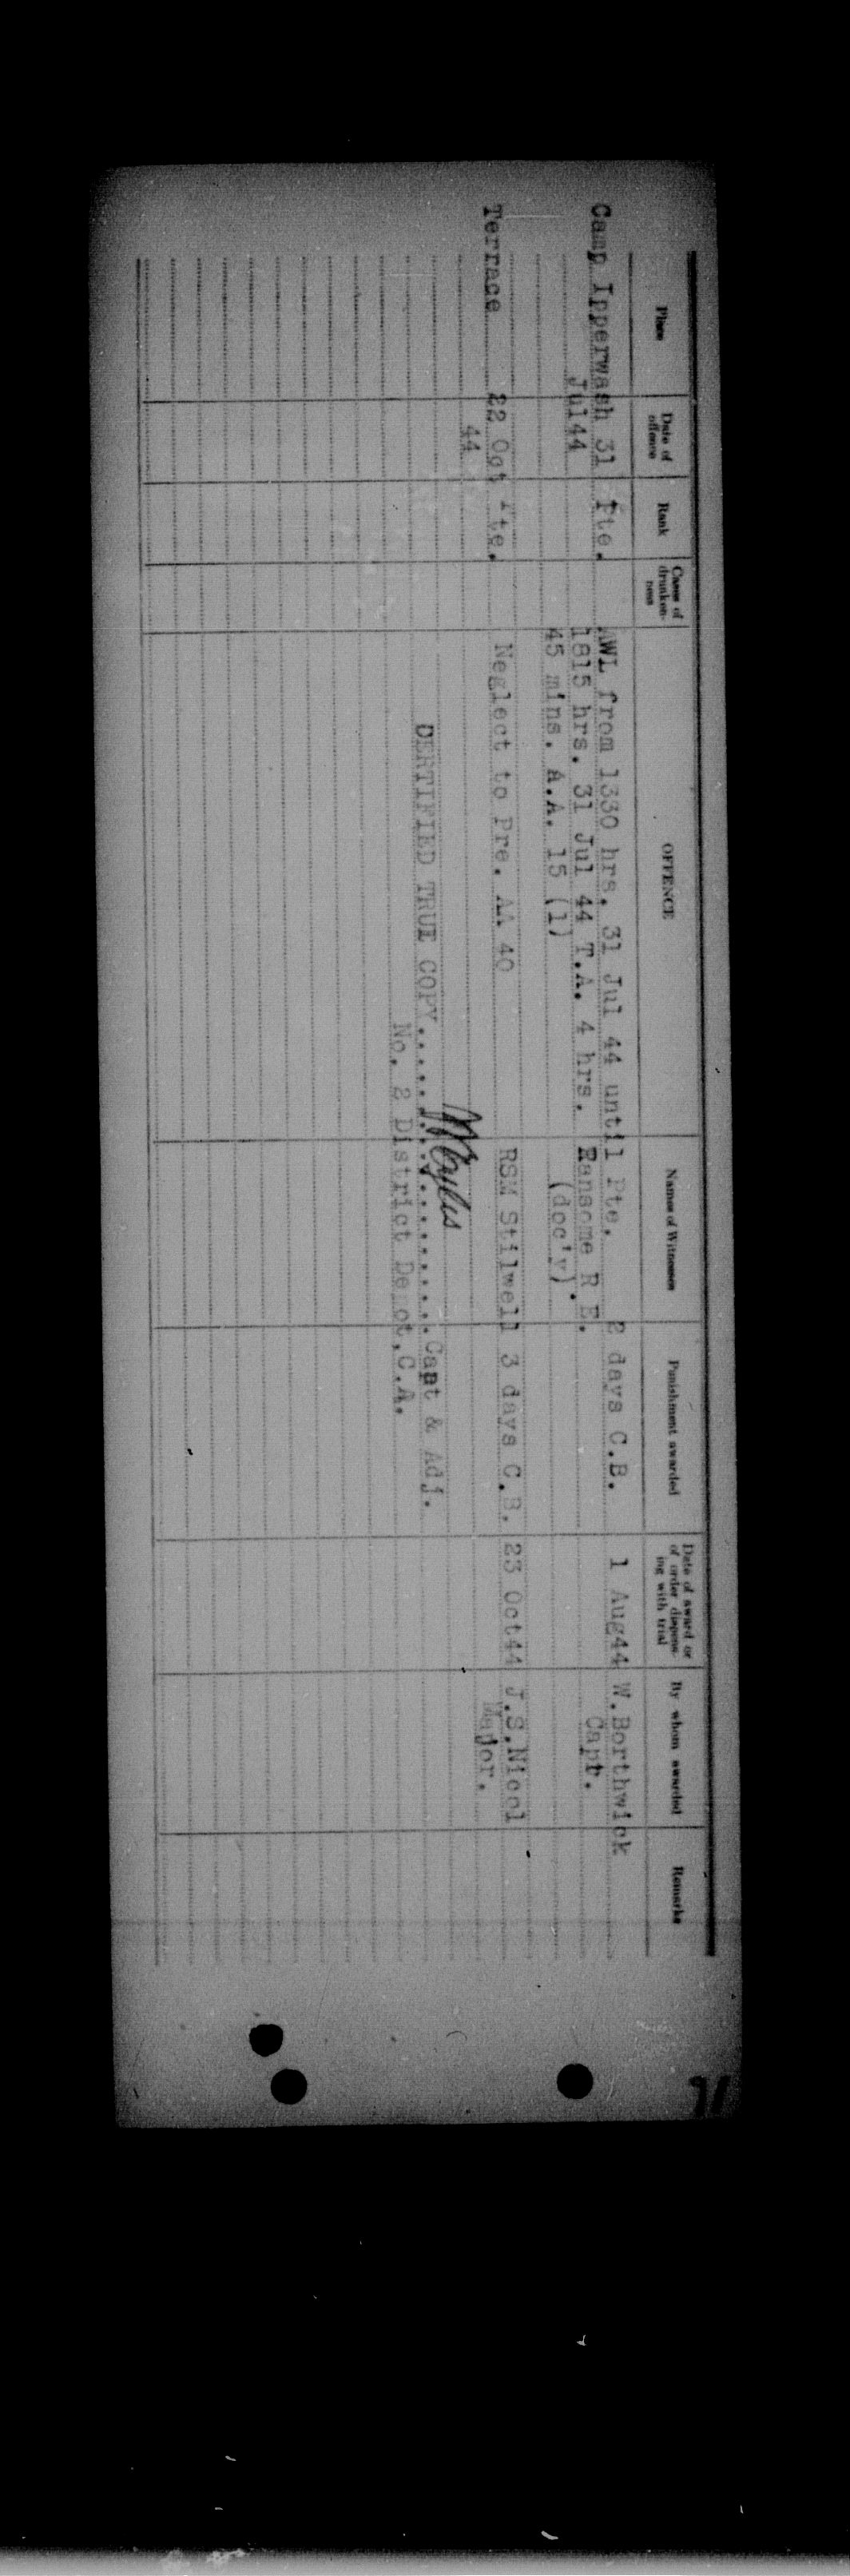 Place Date of offence Rank Cases of drunkenness OFFENCE Names of Witnesses Punishment awarded Date of award or of order dispensing with trial By whom awarded Remarks
Camp Ipperwash 31 Pte. AWL from 1330 hrs. 31 Jul 44 until Pte. 2 days C.B. 1 Aug44 W.Borthwick
Jul44 1815 hrs. 31 Jul 44 T.A. 4 hrs. Ransome R E. Capt.
45 mins. A.A. 15 (1) (doc'y).
Terrace 22 Oct Pte. Neglect to Pre. AA 40 RSM Stilwell 3 days C.B. 23 Oct44 J.S.Nicol
44 Major.
CERTIFIED TRUE COPY Capt & Adj.
No. 2 District Depot, C.A.